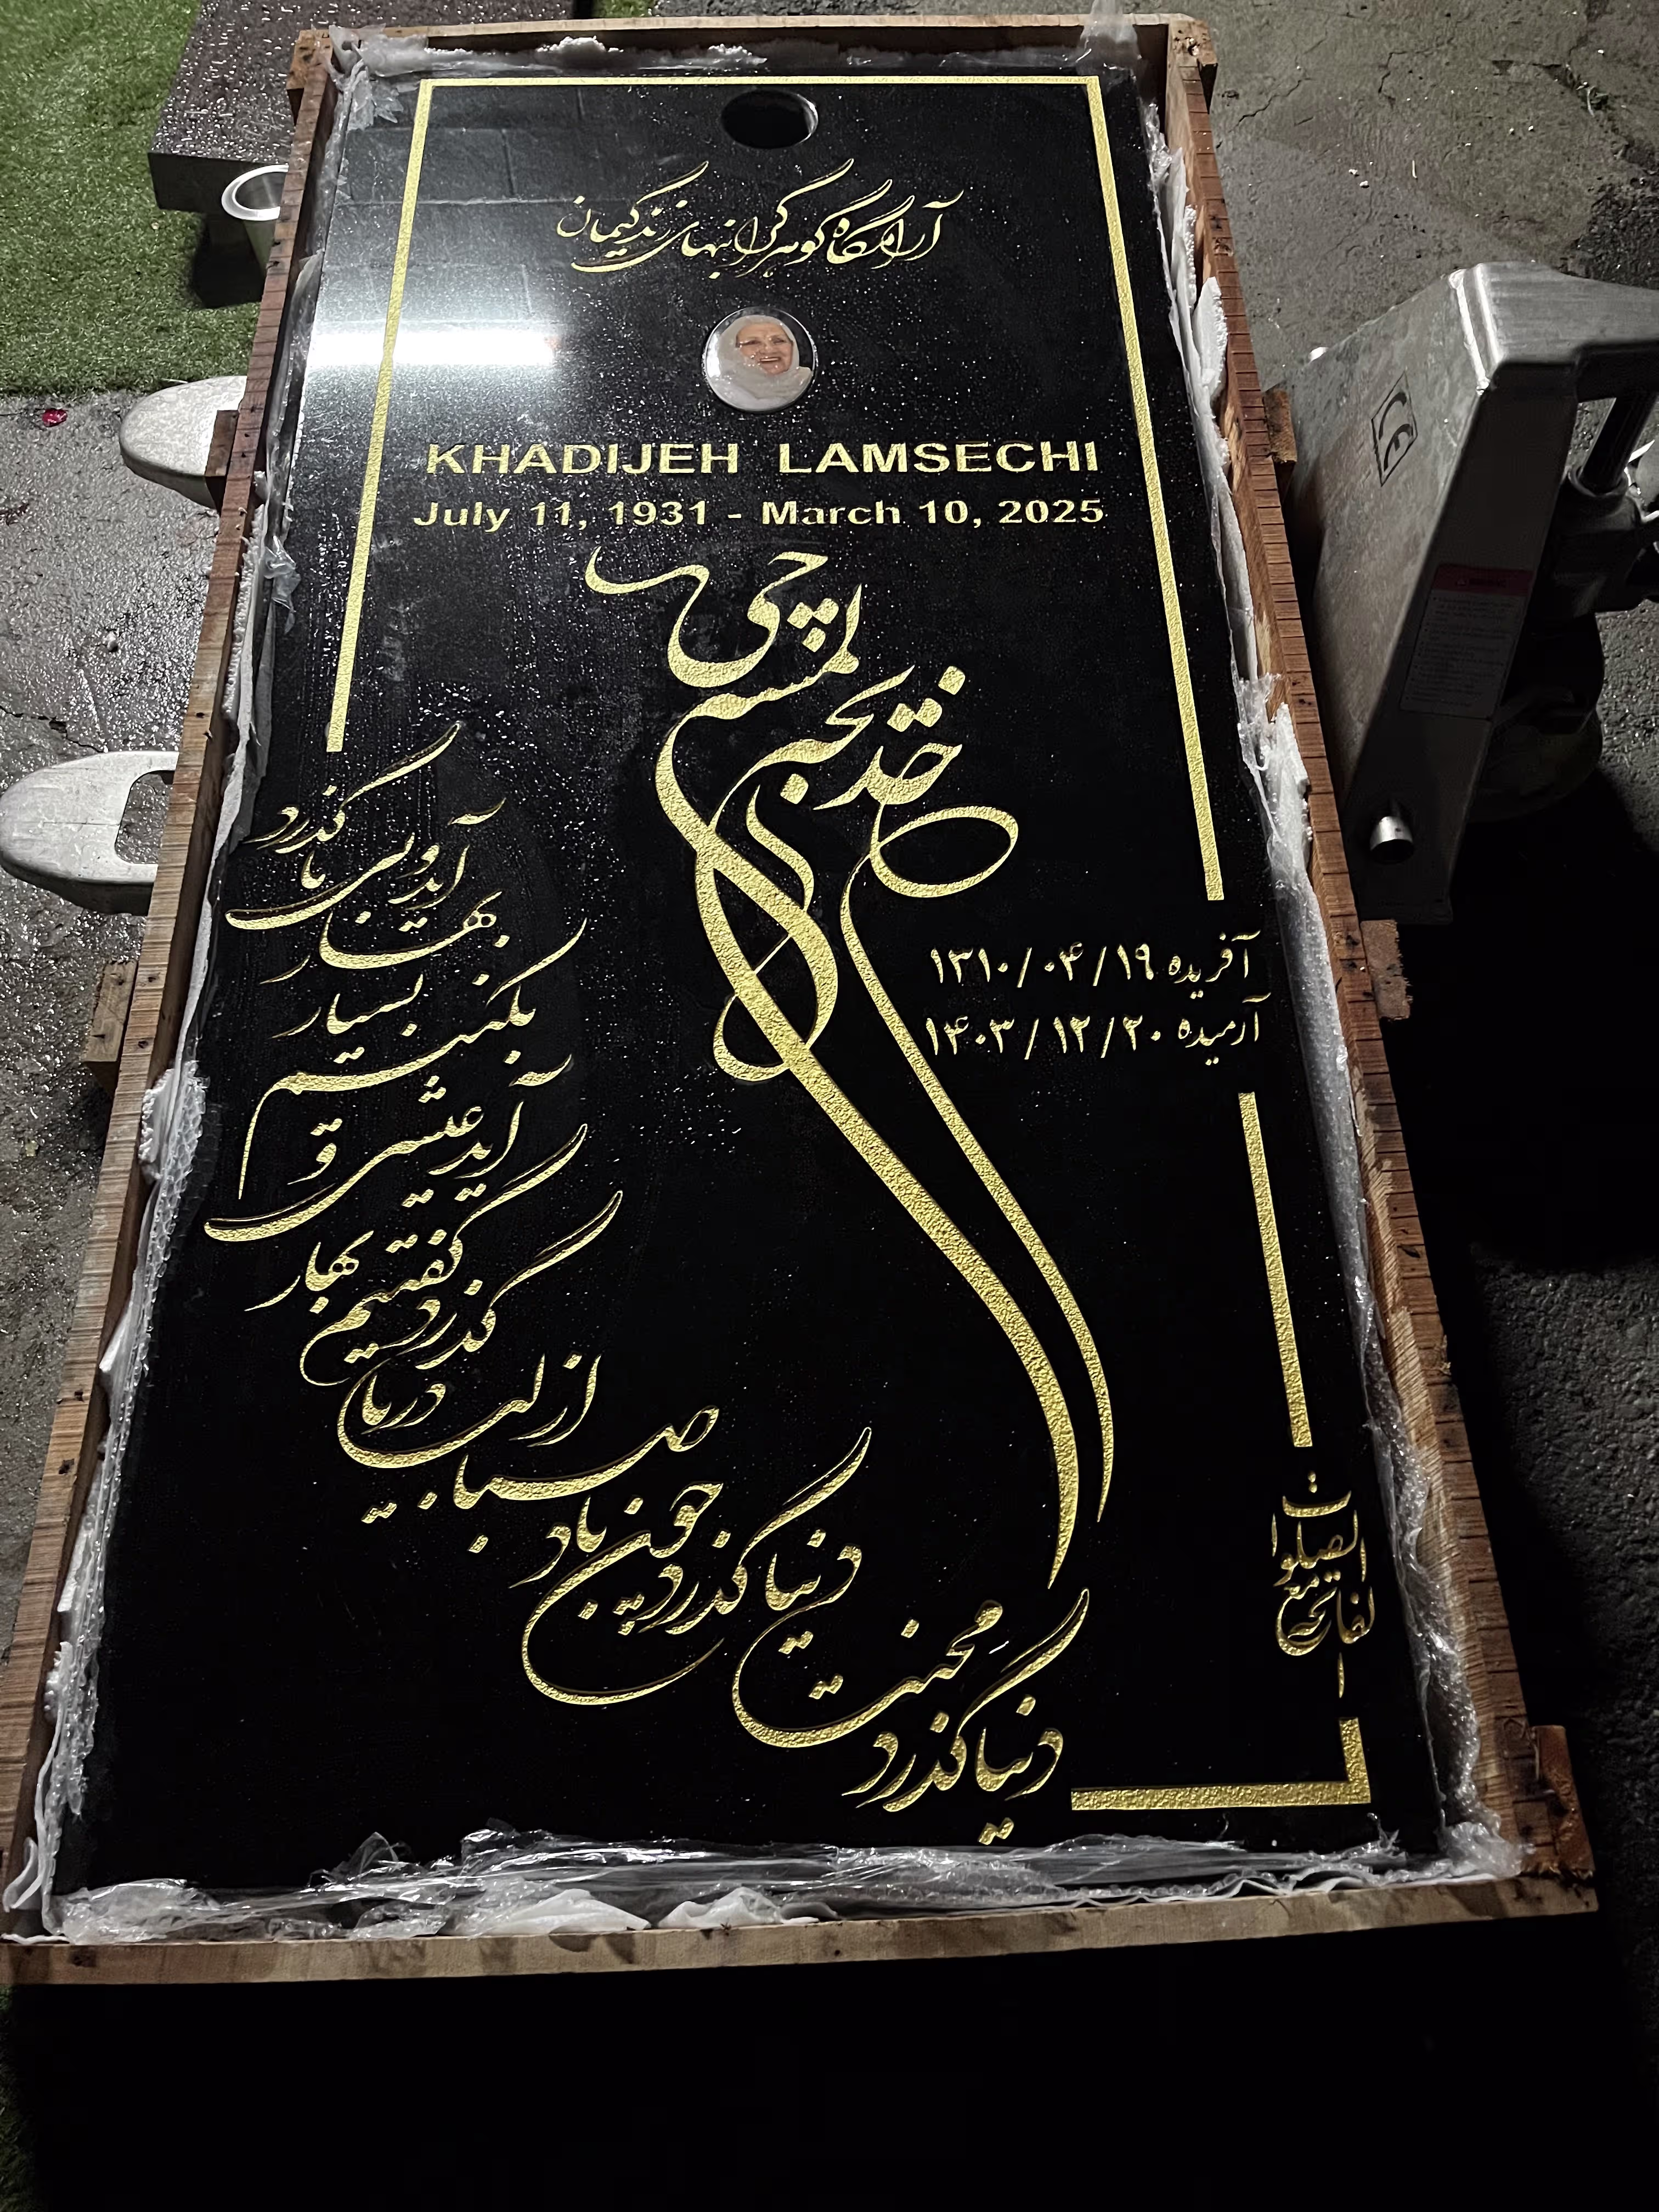 آرامگاه گوهر گرانبهای زندگیمان
KHADIJEH LAMSECHI
July 11, 1931 - March 10, 2025
خدیجه لمسه چی
آفریده ۱۳۱۰/۰۴/۱۹
آرمیده ۱۴۰۳/۱۲/۲۰
دنیا گذرد محنت دنیا گذرد
چون باد صبا از لب دریا گذرد
گفتیم بهار آید و عیشی بکنیم
بسیار بهار آید و بی ما گذرد
الفاتحه مع الصلوات